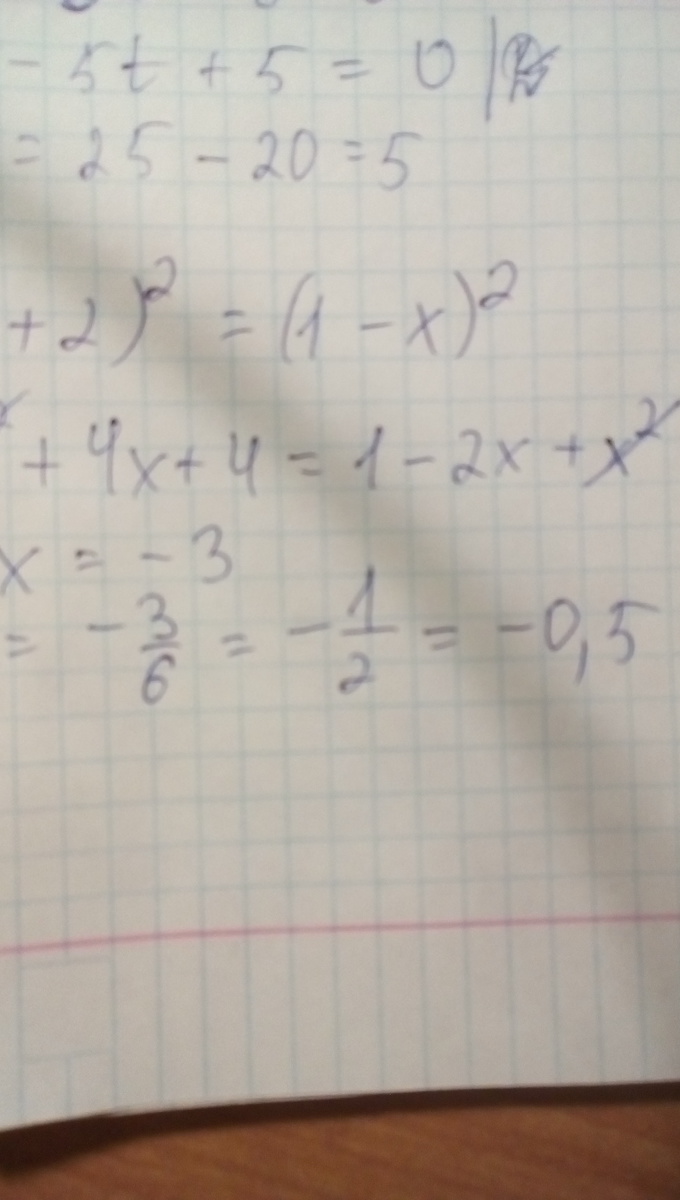 - 5t + 5 = 0 |
= 25 - 20 = 5
+ 2)² = (1 - x)²
+ 4x + 4 = 1 - 2x + x²
x = - 3
= - 3/6 = - 1/2 = - 0,5